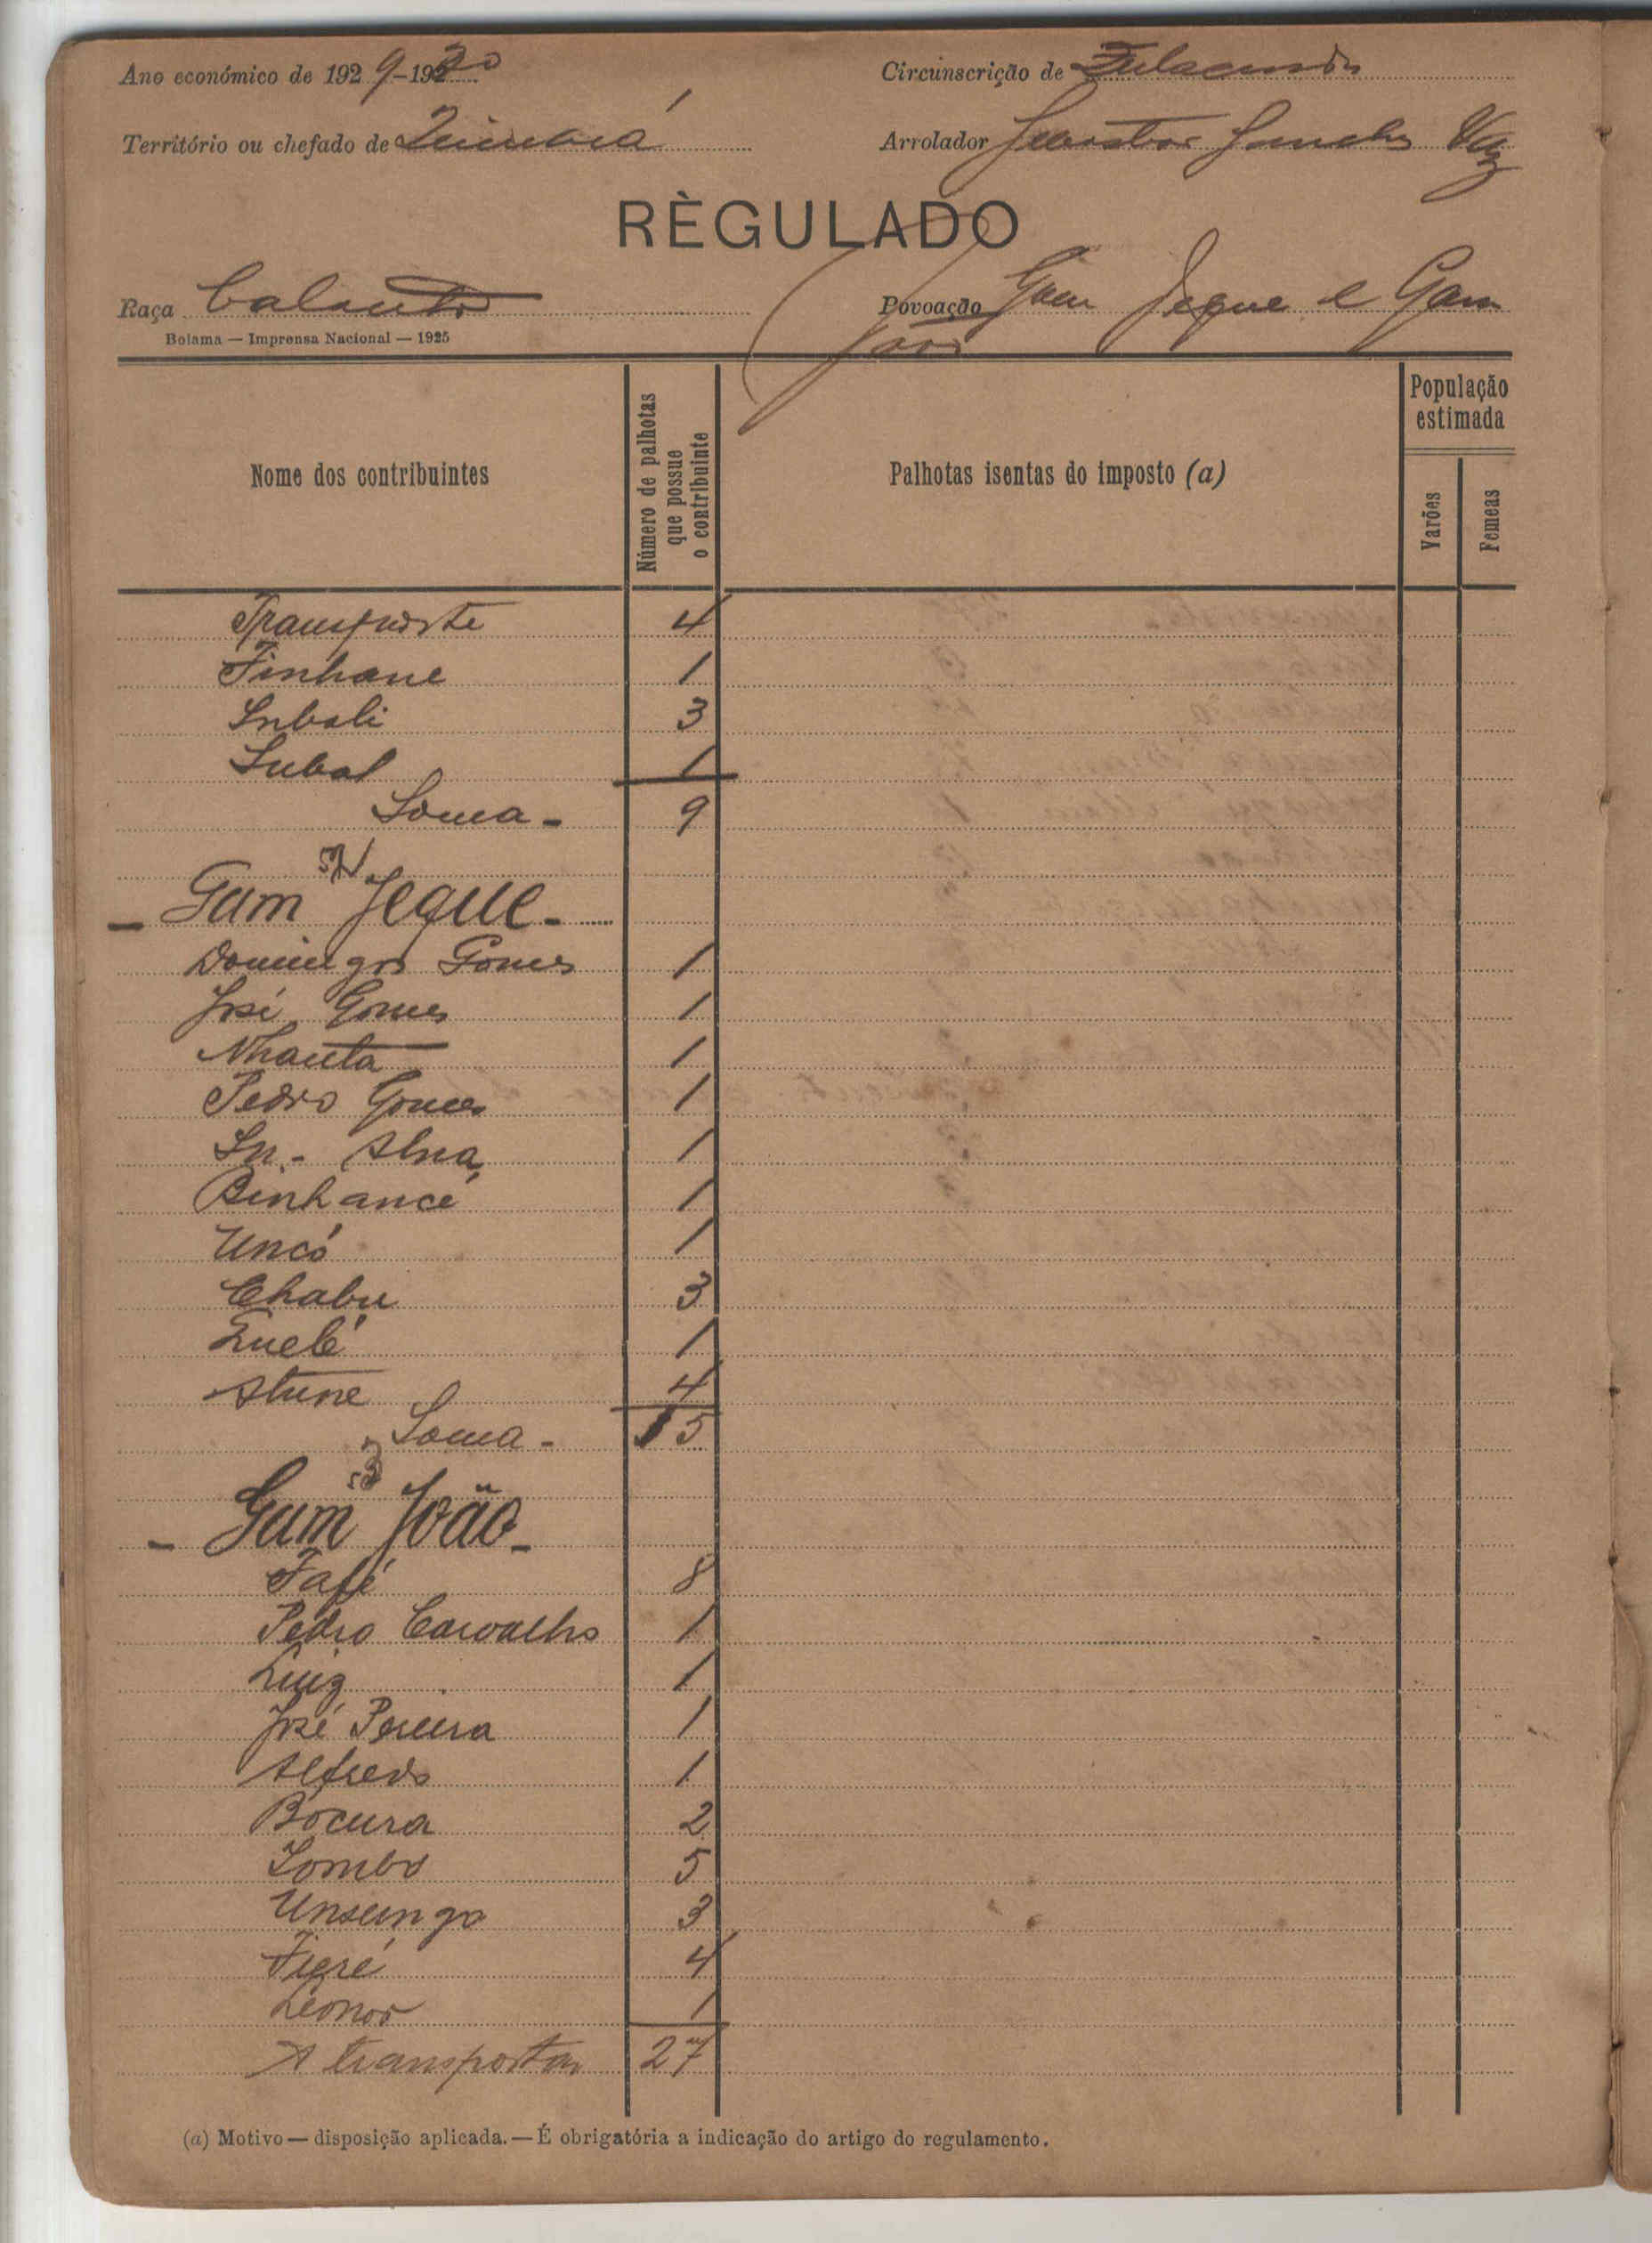 Ano económico de 1929-1930
Circunscrição de Fulacunda
Território ou chefado de Quinará
Arrolador Sebastião Sanches Vaz
RÈGULADO
Raça balanta
Povoação Gam Jeque e Gam
João
Bolama — Imprensa Nacional — 1925
Nome dos contribuintes
Número de palhotas que possue o contribuinte
Palhotas isentas do imposto (a)
População estimada
Varões
Femeas
Transporte 4
Finhane 1
Inbali 3
Lubal 1
Soma - 9
- Gam Jeque -
Domingos Gomes 1
José Gomes 1
Nhanta 1
Pedro Gomes 1
In - Alna 1
Binhancé 1
Uncó 1
Chabu 3
Quelé 1
Atune 4
Soma - 15
- Gam João -
Fafé 8
Pedro Carvalho 1
Luiz 1
José Pereira 1
Alfredo 1
Bocura 2
Lombo 5
Unsunga 3
Fieré 4
Leonor 1
A transportar 27
(a) Motivo — disposição aplicada. — É obrigatória a indicação do artigo do regulamento.